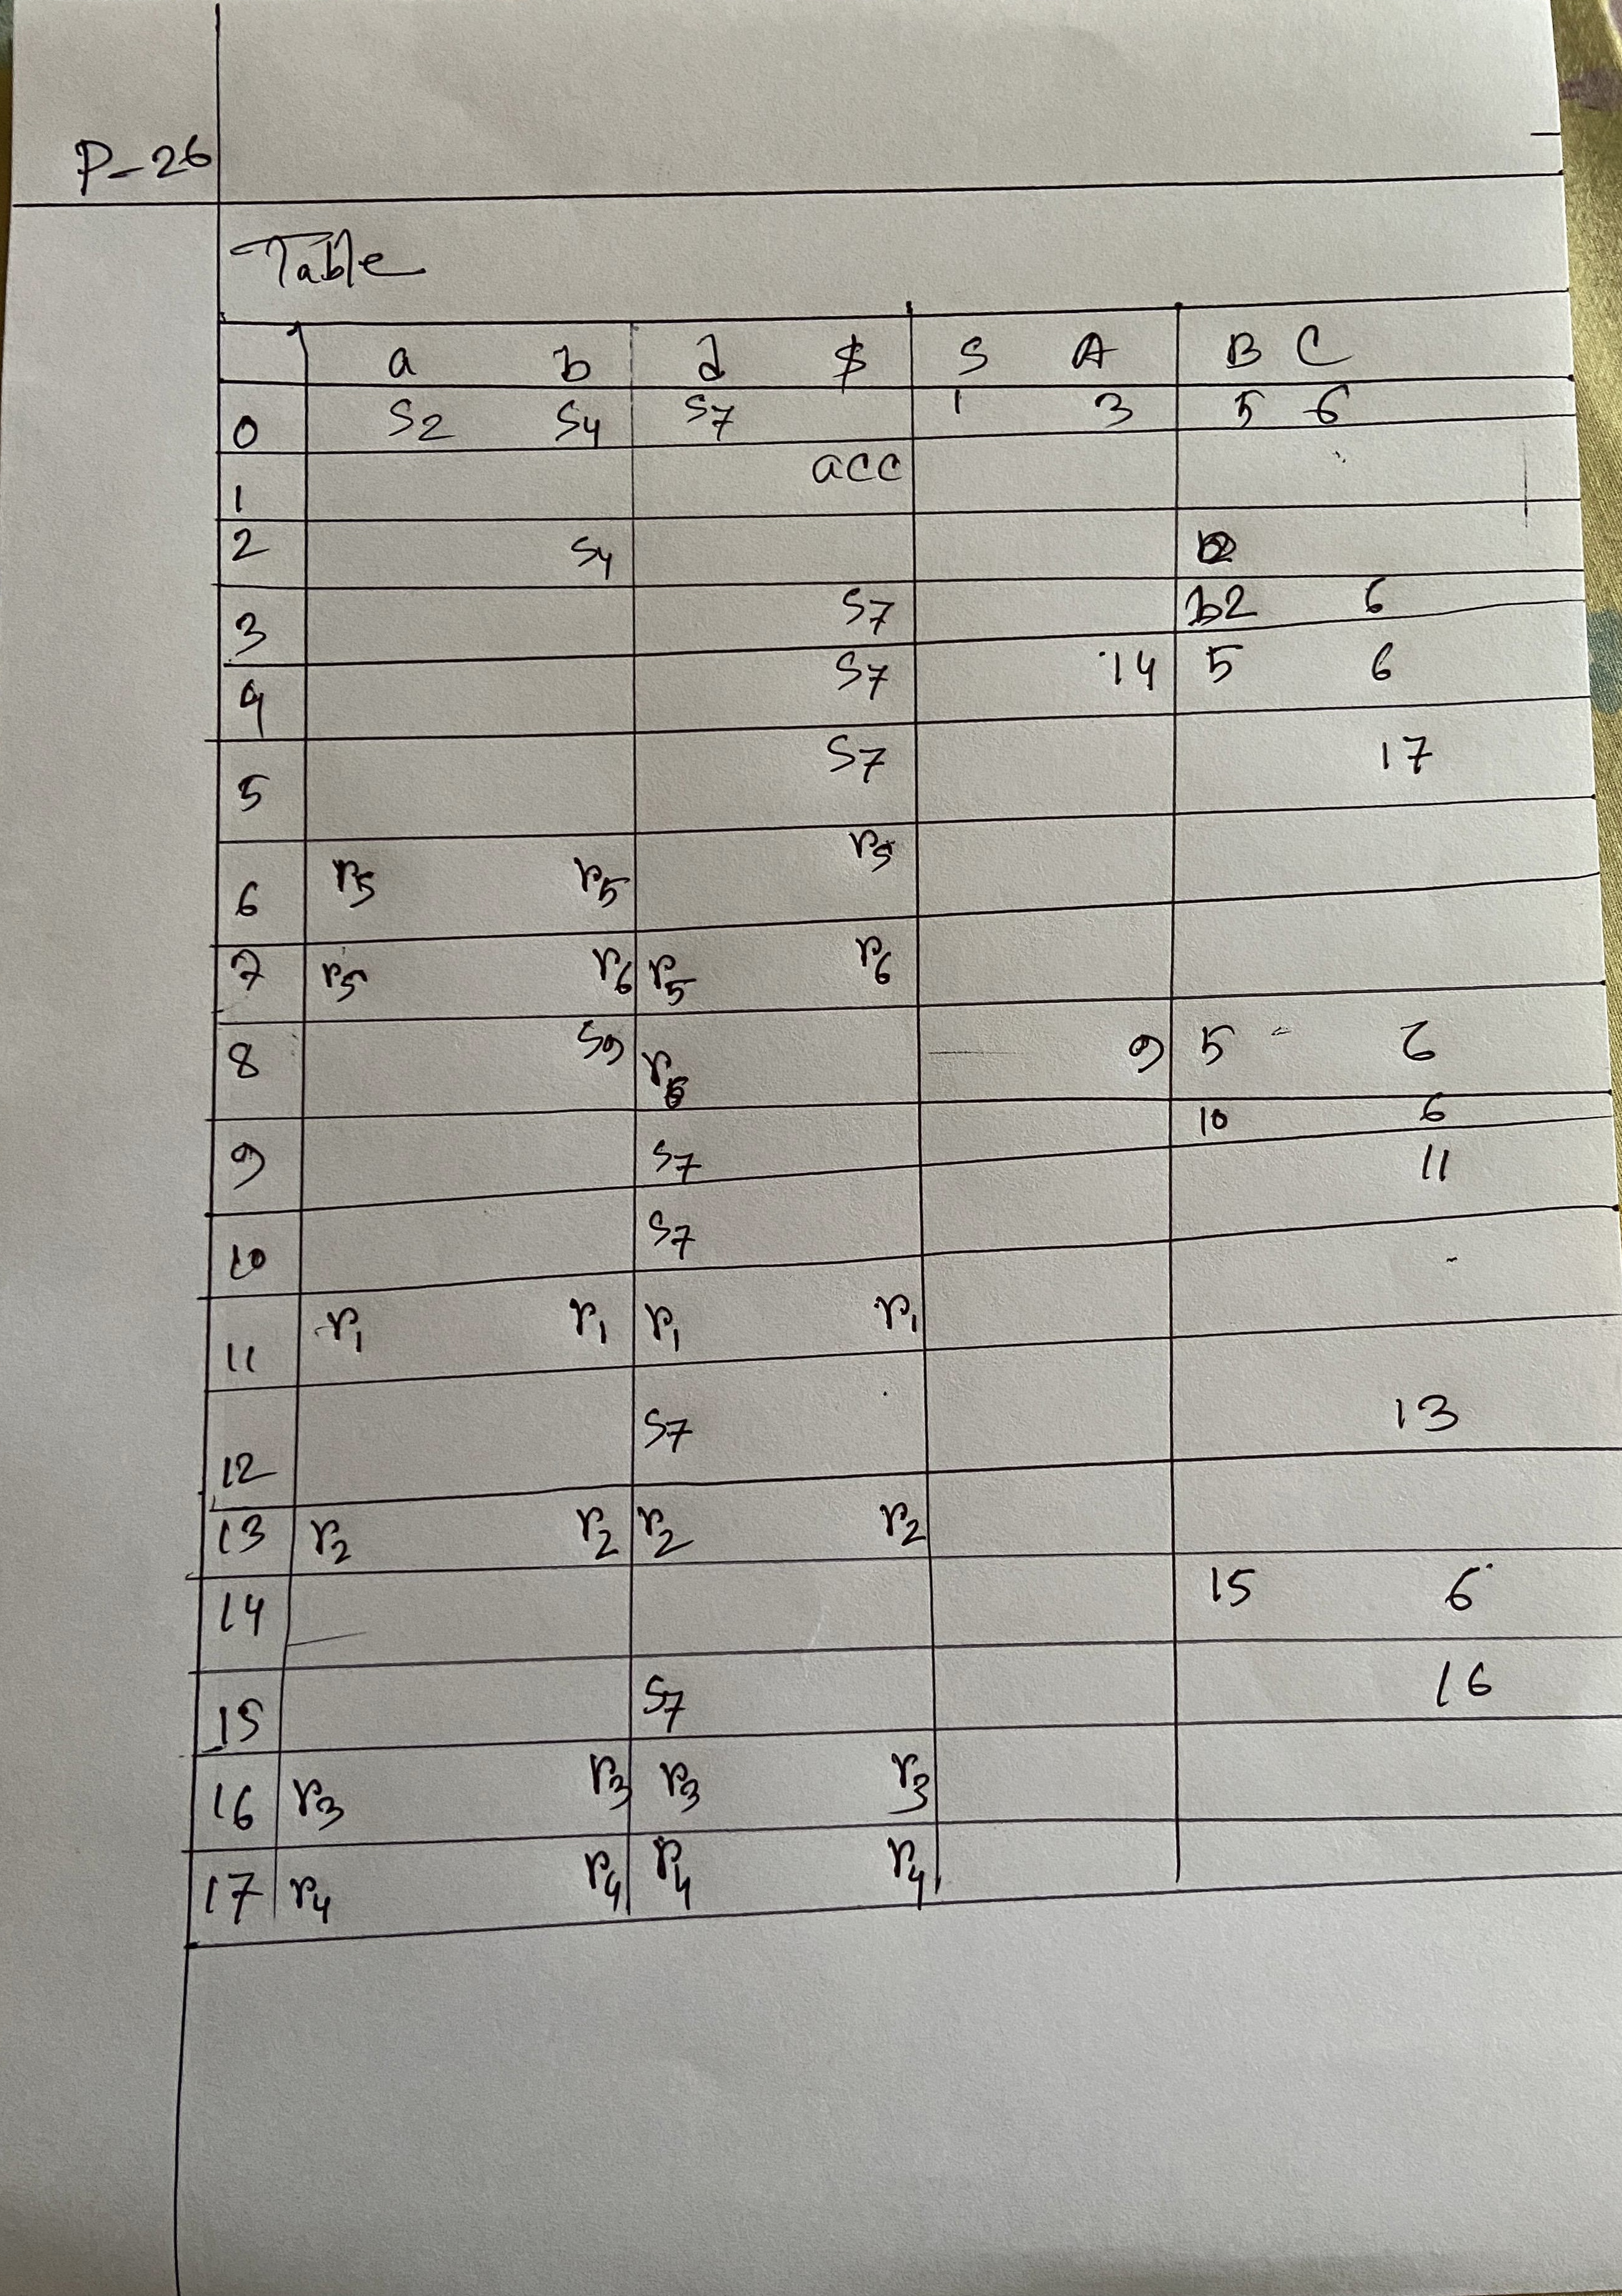 P-26
Table
a b d $ S A B C
0 S2 S4 S7 1 3 5 6
1 acc
2 S4
3 S7 12 6
4 S7 14 5 6
5 S7 17
6 r5 r5 r5
7 r5 r6 r5 r6
8 S9 9 5 6
9 S7 10 6
10 S7 11
11 r1 r1 r1 r1
12 S7 13
13 r2 r2 r2 r2
14 15 6
15 S7 16
16 r3 r3 r3 r3
17 r4 r4 r4 r4